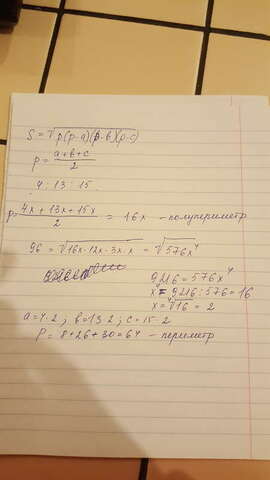 S = √p(p-a)(p-b)(p-c)
p = a+b+c / 2
4 : 13 : 15
p = 4x + 13x + 15x / 2 = 16x - полупериметр
96 = √16x·12x·3x·x = √576x⁴
9216 = 576x⁴
x⁴ = 9216 : 576 = 16
x = ⁴√16 = 2
a = 4·2 ; b = 13·2 ; c = 15·2
P = 8 + 26 + 30 = 64 - периметр